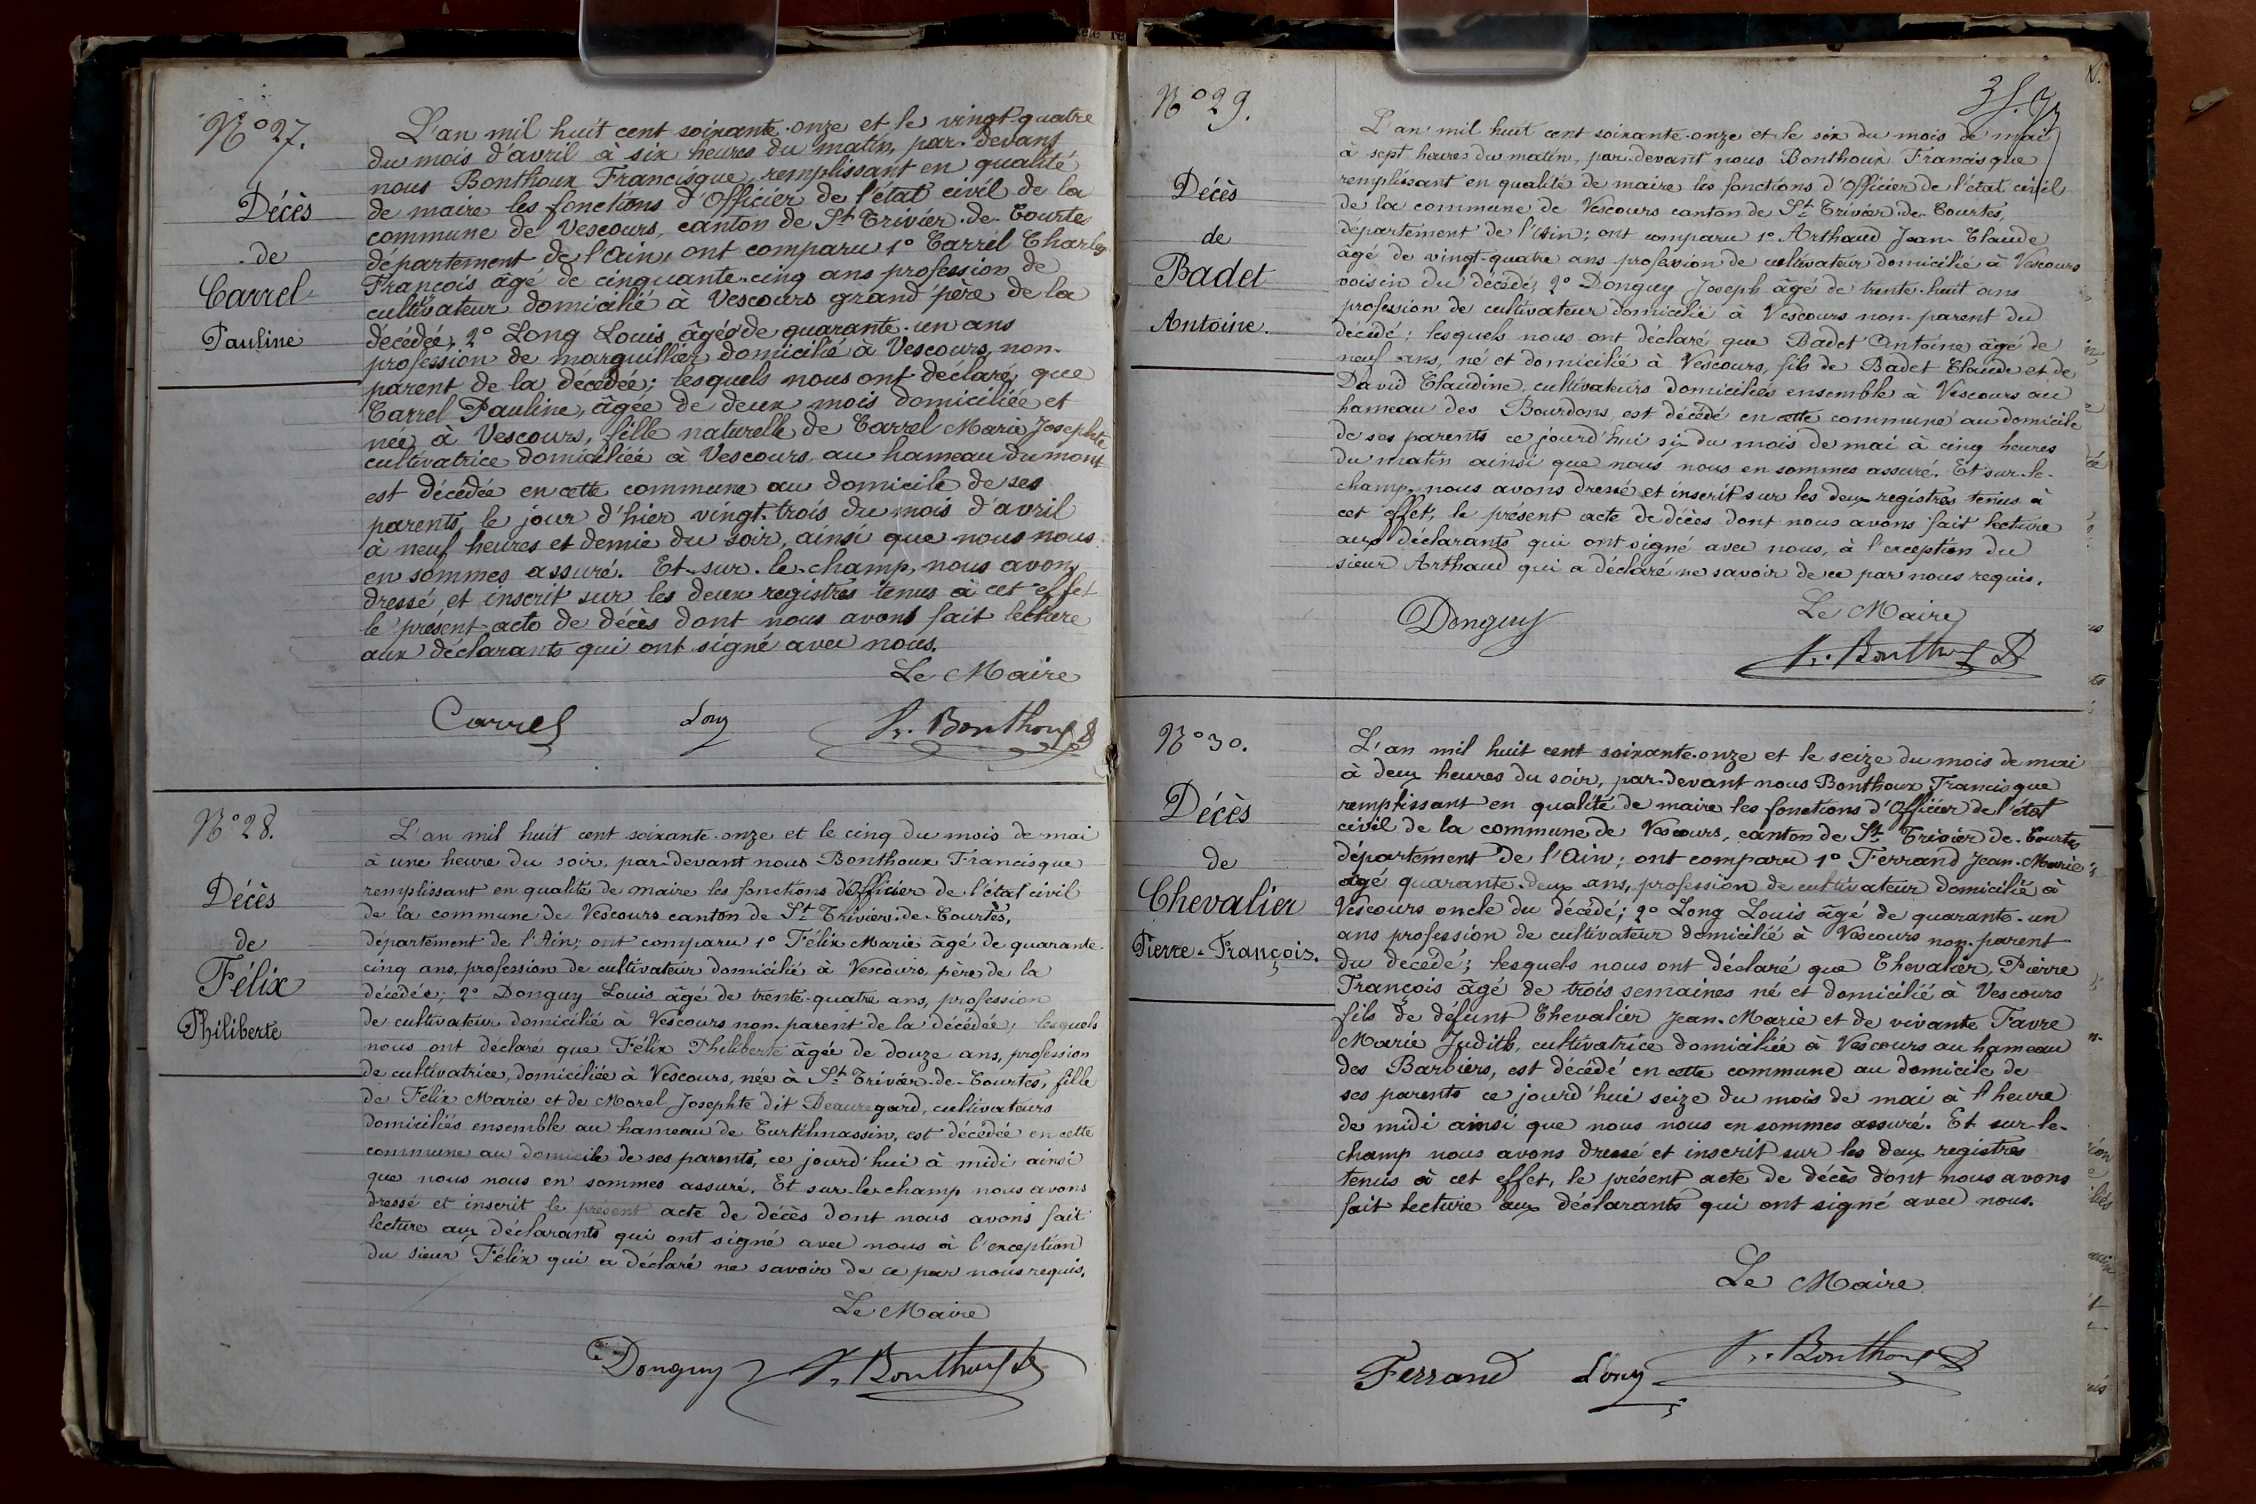 N° 27.
Décès
de
Carrel
Pauline
L'an mil huit cent soixante-onze et le vingt-quatre
du mois d'avril à six heures du matin, par-devant
nous Bonthoux Francisque, remplissant en qualité
de maire les fonctions d'Officier de l'état civil de la
commune de Vescours, canton de St Trivier-de-Courtes
département de l'Ain, ont comparu 1° Carrel Charles
François âgé de cinquante-cinq ans profession de
cultivateur domicilié à Vescours grand'père de la
décédée, 2° Long Louis âgé de quarante-un ans
profession de marguillier domicilié à Vescours, non-
parent de la décédée; lesquels nous ont déclaré, que
Carrel Pauline, âgée de deux mois domiciliée et
née à Vescours, fille naturelle de Carrel Marie Josephte
cultivatrice domiciliée à Vescours au hameau du mont
est décédée en cette commune au domicile de ses
parents, le jour d'hier vingt-trois du mois d'avril
à neuf heures et demie du soir, ainsi que nous nous
en sommes assuré. Et sur-le-champ, nous avons
dressé et inscrit sur les deux registres tenus à cet effet
le présent acte de décès dont nous avons fait lecture
aux déclarants qui ont signé avec nous.
Le Maire
Carrel Long Fr. Bonthoux
N° 28.
Décès
de
Félix
Philiberte
L'an mil huit cent soixante-onze et le cinq du mois de mai
à une heure du soir, par-devant nous Bonthoux Francisque
remplissant en qualité de maire les fonctions d'Officier de l'état civil
de la commune de Vescours canton de St Trivier-de-Courtes,
département de l'Ain; ont comparu 1° Félix Marie âgé de quarante-
cinq ans, profession de cultivateur domicilié à Vescours père de la
décédée; 2° Donguy Louis âgé de trente-quatre ans, profession
de cultivateur domicilié à Vescours non-parent de la décédée; lesquels
nous ont déclaré que Félix Philiberte âgée de douze ans, profession
de cultivatrice, domiciliée à Vescours, née à St Trivier-de-Courtes, fille
de Félix Marie et de Morel Josephte dit Beauregard, cultivateurs
domiciliés ensemble au hameau de est décédée en cette
commune au domicile de ses parents, ce jourd'hui à midi ainsi
que nous nous en sommes assuré. Et sur-le-champ nous avons
dressé et inscrit le présent acte de décès dont nous avons fait
lecture aux déclarants qui ont signé avec nous à l'exception
du sieur Félix qui a déclaré ne savoir de ce par nous requis.
Le Maire
Donguy Fr. Bonthoux
N° 29.
Décès
de
Badet
Antoine.
L'an mil huit cent soixante-onze et le six du mois de mai
à sept heures du matin, par-devant nous Bonthoux Francisque
remplissant en qualité de maire les fonctions d'Officier de l'état civil
de la commune de Vescours canton de St Trivier-de-Courtes,
département de l'Ain; ont comparu 1° Arthaud Jean-Claude
âgé de vingt-quatre ans profession de cultivateur domicilié à Vescours
voisin du décédé; 2° Donguy Joseph âgé de trente-huit ans
profession de cultivateur domicilié à Vescours non-parent du
décédé; lesquels nous ont déclaré que Badet Antoine âgé de
neuf ans, né et domicilié à Vescours, fils de Badet Claude et de
David Claudine, cultivateurs domiciliés ensemble à Vescours au
hameau des Bourdons, est décédé en cette commune au domicile
de ses parents ce jourd'hui six du mois de mai à cinq heures
du matin ainsi que nous nous en sommes assuré. Et sur-le-
champ nous avons dressé et inscrit sur les deux registres tenus à
cet effet, le présent acte de décès dont nous avons fait lecture
aux déclarants qui ont signé avec nous, à l'exception du
sieur Arthaud qui a déclaré ne savoir de ce par nous requis.
Le Maire
Donguy Fr. Bonthoux
N° 30.
Décès
de
Chevalier
Pierre-François.
L'an mil huit cent soixante-onze et le seize du mois de mai
à deux heures du soir, par-devant nous Bonthoux Francisque
remplissant en qualité de maire les fonctions d'Officier de l'état
civil de la commune de Vescours, canton de St Trivier-de-Courtes
département de l'Ain; ont comparu 1° Ferrand Jean-Marie
âgé quarante-deux ans, profession de cultivateur domicilié à
Vescours oncle du décédé; 2° Long Louis âgé de quarante-un
ans profession de cultivateur domicilié à Vescours non-parent
du décédé; lesquels nous ont déclaré que Chevalier, Pierre
François âgé de trois semaines né et domicilié à Vescours
fils de défunt Chevalier Jean-Marie et de vivante Favre
Marie Judith, cultivatrice domiciliée à Vescours au hameau
des Barbiers, est décédé en cette commune au domicile de
ses parents ce jourd'hui seize du mois de mai à l'heure
de midi ainsi que nous nous en sommes assuré. Et sur-le-
champ nous avons dressé et inscrit sur les deux registres
tenus à cet effet, le présent acte de décès dont nous avons
fait lecture aux déclarants qui ont signé avec nous.
Le Maire
Fr. Bonthoux
Ferrand Long